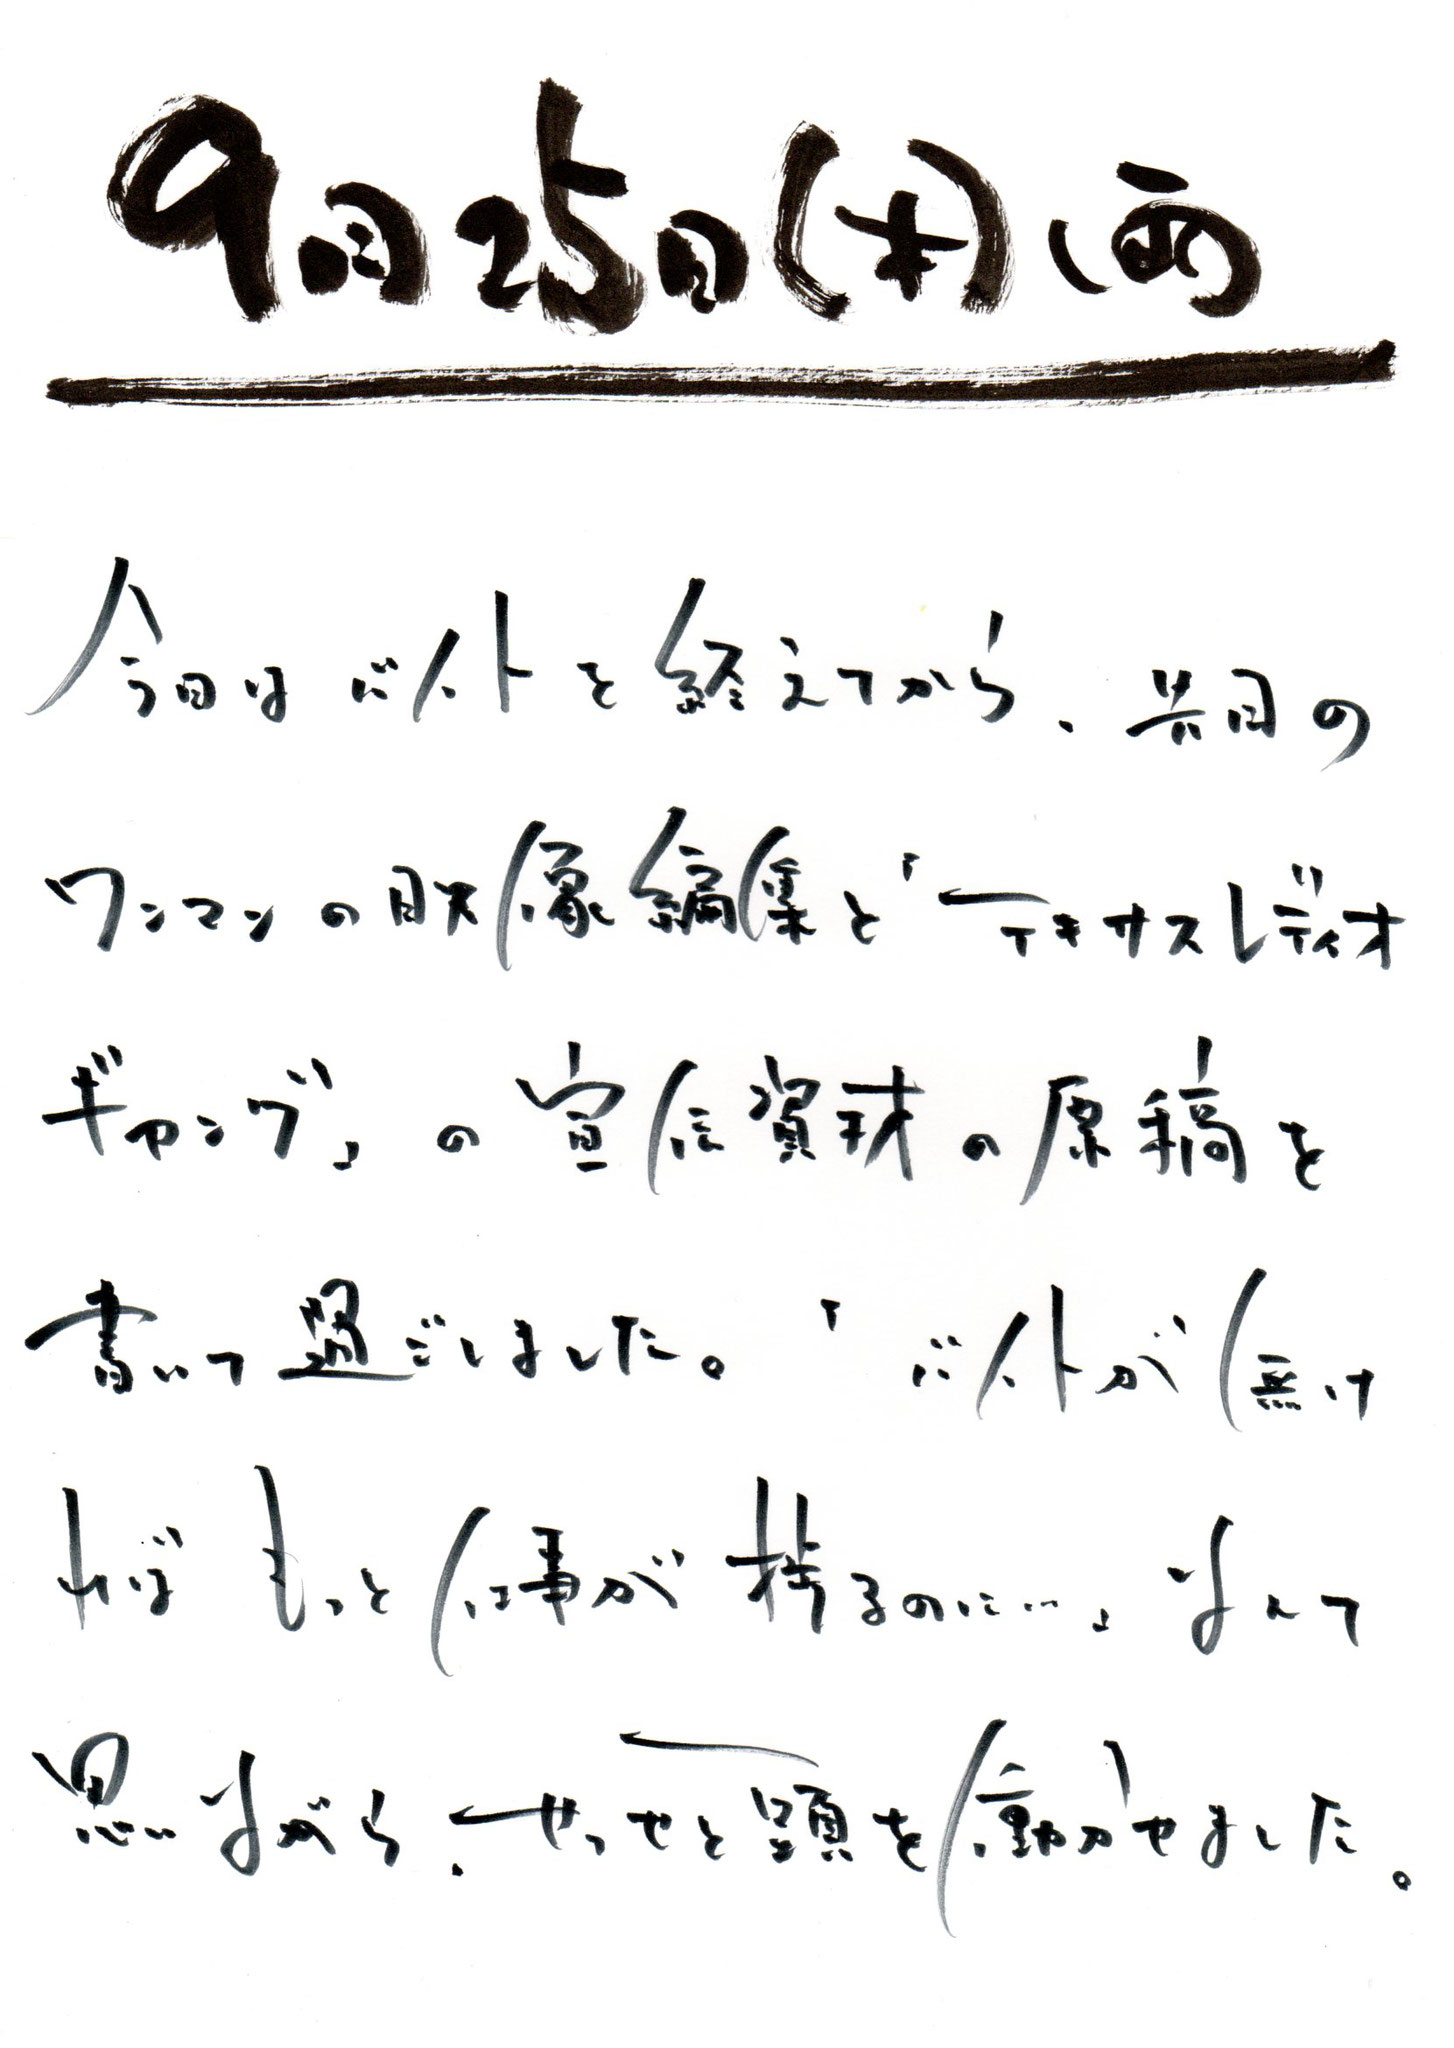 9月25日(木)雨
今日はバイトを終えてから、の
ワンマンの映像編集と「テキサスレディオ
ギャング」の宣伝資料の原稿を
書いて過ごしました。「バイトが無け
ればもっと仕事が捗るのに…」なんて
思いながら、せっせと頭を働かせました。